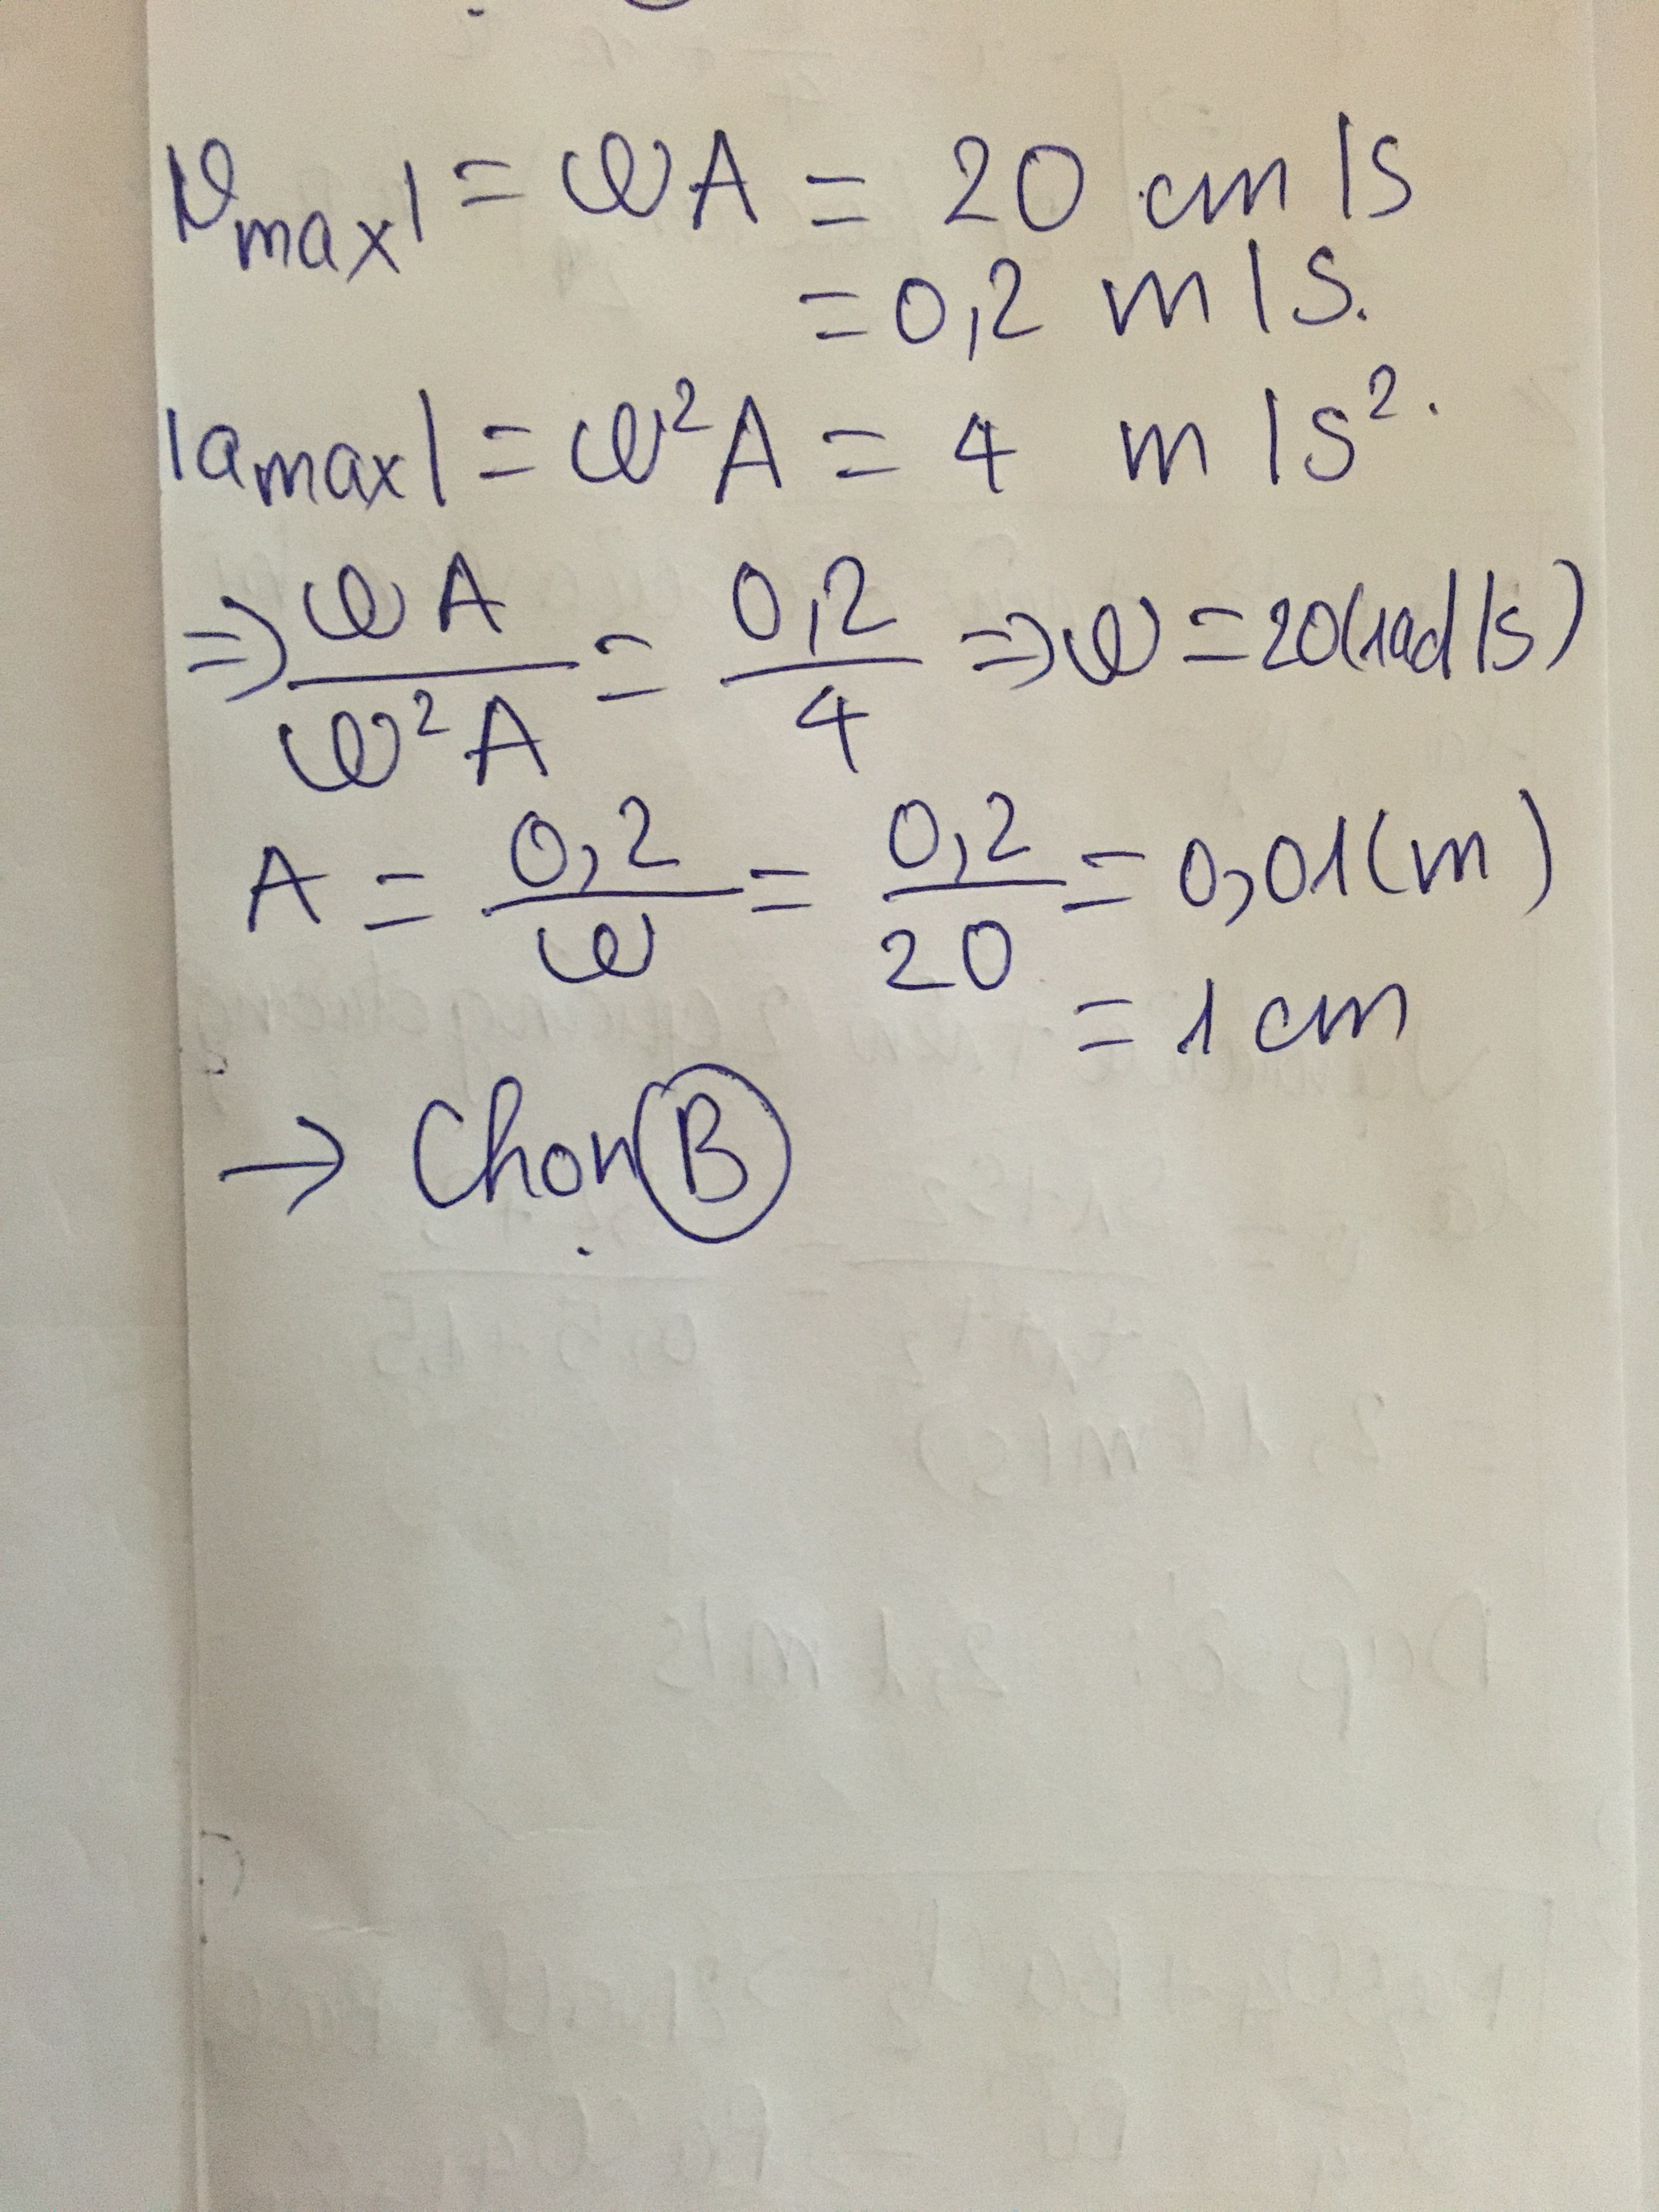 |vmax| = ωA = 20 cm/s
= 0,2 m/s.
|amax| = ω²A = 4 m/s².
=> ωA/ω²A = 0,2/4 => ω = 20(rad/s)
A = 0,2/ω = 0,2/20 = 0,01(m)
= 1 cm
→ Chọn B